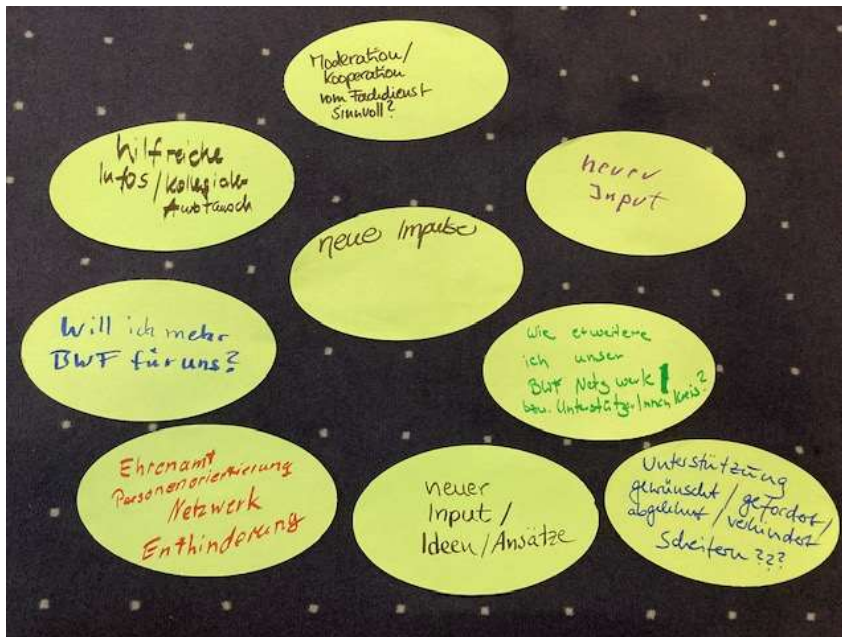 Moderation/
Kooperation
vom Fachdienst
sinnvoll?
hilfreiche
Infos/kollegialer
Austausch
neuer
Input
neue Impulse
Will ich mehr
BWF für uns?
Wie erweitere
ich unser
BWF Netzwerk
bzw. UnterstützerInnenkreis?
Ehrenamt
Personenorientierung
Netzwerk
Enthinderung
neuer
Input/
Ideen/Ansätze
Unterstützung
gewünscht/gefordert/
abgelehnt/verhindert
Scheitern???